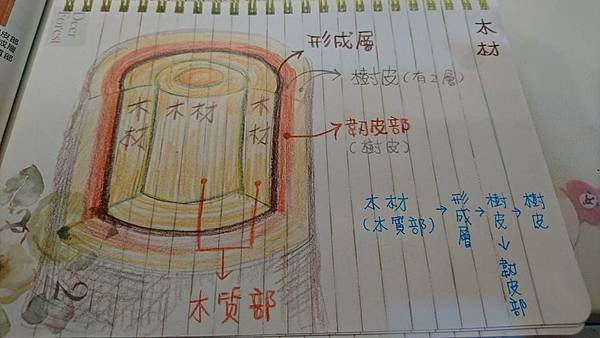 木材
形成層
樹皮(有2層)
韌皮部
(樹皮)
木材
木材
木材
木材
(木質部)
→形成層→樹皮→樹皮
↓
韌皮部
木质部
Deer
Forest